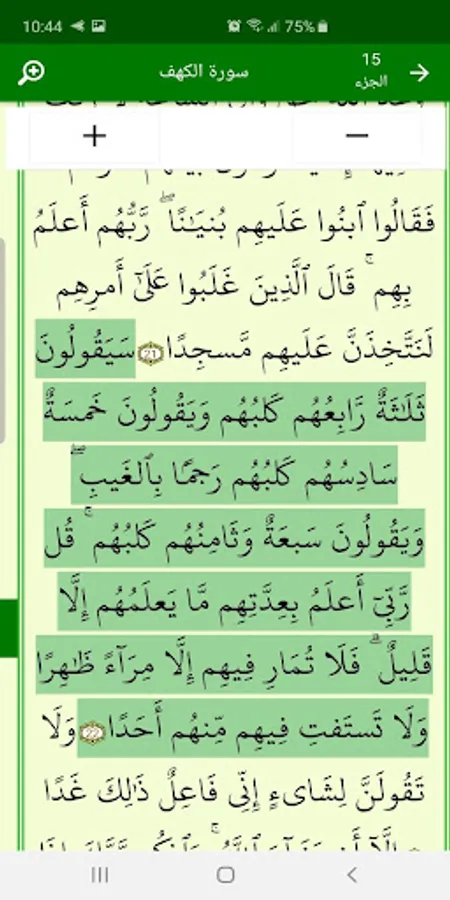 10:44
75%
سورة الكهف
15
الجزء
+
−
فَقَالُوا ٱبنُوا عَلَيهِم بُنيَـٰنًا ۖ رَّبُّهُم أَعلَمُ
بِهِم ۚ قَالَ ٱلَّذِينَ غَلَبُوا عَلَىٰٓ أَمرِهِم
لَنَتَّخِذَنَّ عَلَيهِم مَّسجِدًا 21 سَيَقُولُونَ
ثَلَـٰثَةٌ رَّابِعُهُم كَلبُهُم وَيَقُولُونَ خَمسَةٌ
سَادِسُهُم كَلبُهُم رَجمًا بِٱلغَيبِ ۖ
وَيَقُولُونَ سَبعَةٌ وَثَامِنُهُم كَلبُهُم ۚ قُل
رَّبِّىٓ أَعلَمُ بِعِدَّتِهِم مَّا يَعلَمُهُم إِلَّا
قَلِيلٌ ۗ فَلَا تُمَارِ فِيهِم إِلَّا مِرَآءً ظَـٰهِرًا
وَلَا تَستَفتِ فِيهِم مِّنهُم أَحَدًا 22 وَلَا
تَقُولَنَّ لِشَاىءٍ إِنِّى فَاعِلٌ ذَٰلِكَ غَدًا